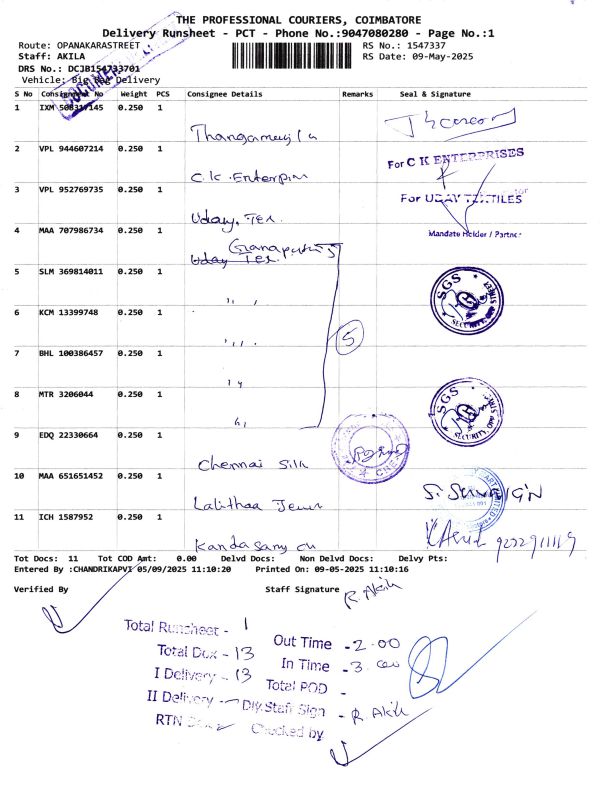 THE PROFESSIONAL COURIERS, COIMBATORE
Delivery Runsheet - PCT - Phone No.:9047080280 - Page No.:1
Route: OPANAKARASTREET
RS No.: 1547337
Staff: AKILA
RS Date: 09-May-2025
DRS No.: DCJB154733701
Vehicle: Big Bag Delivery
S No Consignment No Weight PCS Consignee Details Remarks Seal & Signature
1 IXM 508317145 0.250 1
2 VPL 944607214 0.250 1 C.K. Enterprin For C K ENTERPRISES
3 VPL 952769735 0.250 1 Uday. Tex. For UDAY TEXTILES
Mandate Holder / Partner
4 MAA 707986734 0.250 1 Uday Tex.
5 SLM 369814011 0.250 1 " "
SGS
SECURITY
6 KCM 13399748 0.250 1
5
7 BHL 100386457 0.250 1
8 MTR 3206044 0.250 1
SGS
SECURITY
9 EDQ 22330664 0.250 1 Chennai Silk
10 MAA 651651452 0.250 1 Lalithaa Jewe
11 ICH 1587952 0.250 1 Kandasamy
Tot Docs: 11 Tot COD Amt: 0.00 Delvd Docs: Non Delvd Docs: Delvy Pts:
Entered By :CHANDRIKAPVI 05/09/2025 11:10:20 Printed On: 09-05-2025 11:10:16
Verified By
Staff Signature R. Akila
Total Runsheet - 1
Total Dox - 13
I Delivery - 13
II Delivery -
RTN Dox
Out Time - 2.00
In Time - 3.00
Total POD -
Dly.Staff Sign - R. Akila
Checked by